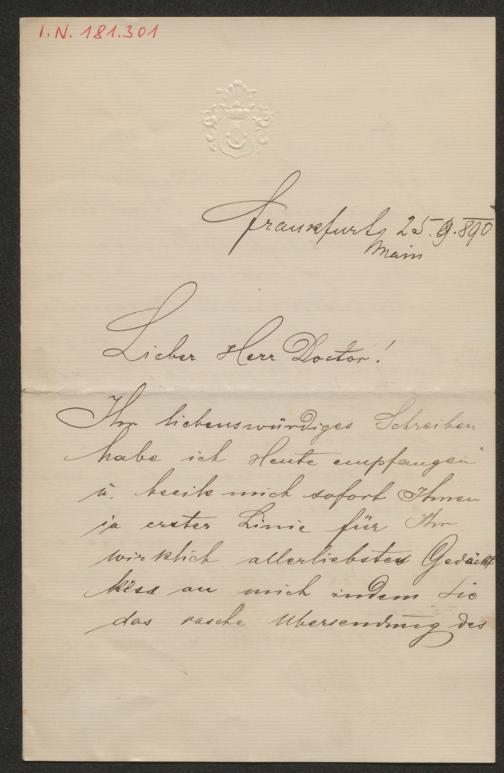 I.N. 181.301
Frankfurt 25.9.890
Main
Lieber Herr Doctor!
Ihr liebenswürdiges Schreiben
habe ich Heute empfangen
u. beeile mich sofort Ihnen
in erster Linie für Ihr
wirklich allerliebstes
an mich indem Sie
das rasche Übersendung des